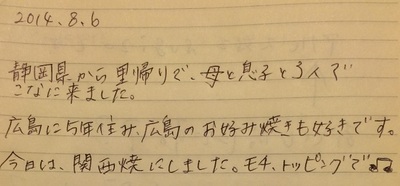 2014.8.6
静岡県から里帰りで、母と息子と3人で
ここに来ました。
広島に5年住み、広島のお好み焼きも好きです。
今日は、関西焼にしました。モチ、トッピングで